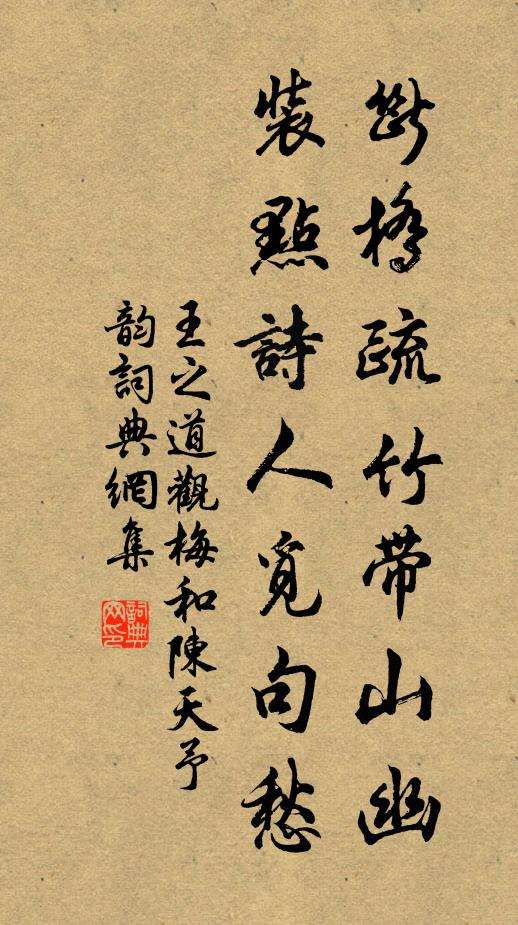 斷橋疏竹帶山幽
裝點詩人覓句愁
王之道觀梅和陳天予
韵詞典網集
詞典網印